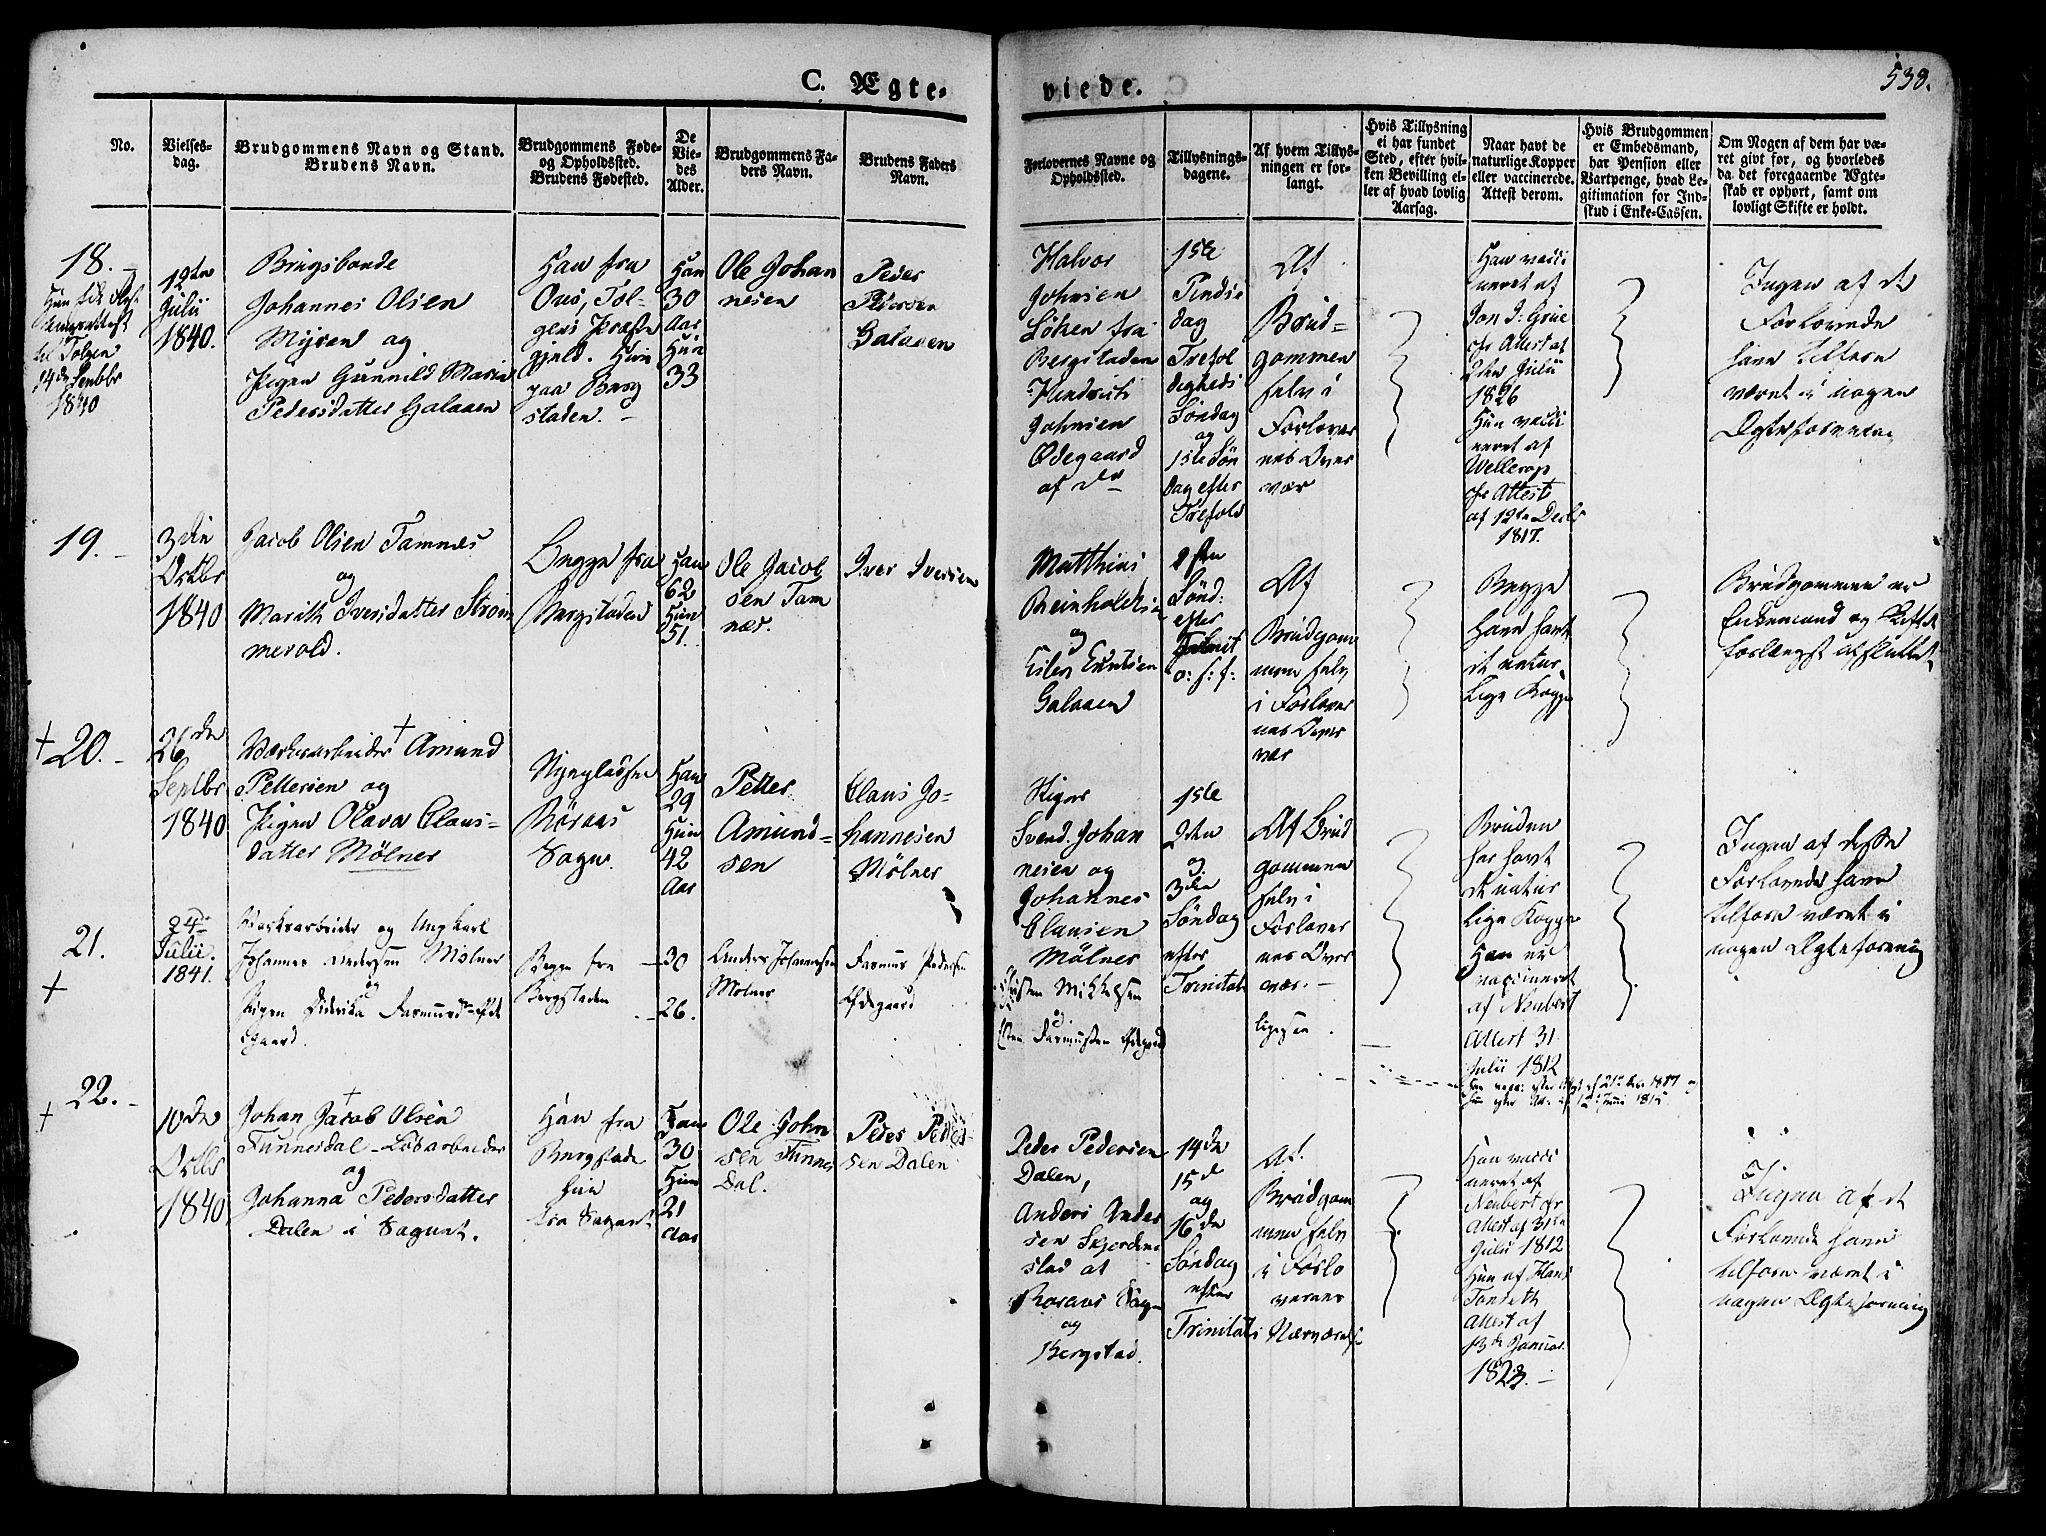 538.
C. Ægte-
viede.
No.
Vielses-
dag.
Brudgommens Navn og Stand.
Brudens Navn.
Brudgommens Føde-
og Opholdssted.
Brudens Fødested.
De
Vie-
des
Alder.
Brudgommens Fa-
ders Navn.
Brudens Faders
Navn.
Forlovernes Navne og
Opholdssted.
Tillysnings-
dagene.
Af hvem Tillys-
ningen er for-
langt.
Hvis Tillysning
ei har fundet
Sted, efter hvil-
ken Bevilling el-
ler af hvad lovlig
Aarsag.
Naar havt de
naturlige Kopper
eller vaccinerede.
Attest derom.
Hvis Brudgommen
er Embedsmand,
har Pension eller
Vartpenge, hvad Le-
gitimation for Ind-
skud i Enke-Cassen.
Om Nogen af dem har væ-
ret givt før, og hvorledes
da det foregaaende Ægte-
skab er ophørt, samt om
lovligt Skifte er holdt.
18.
til Tolgen
1840
12te
Julii
1840.
Brugsbonde
Johannes Olsen
Myren og
Pigen Gunnild Maria
Pedersdatter Galaaen
Han fra
Ous, Tol-
gens Præste
gjeld. Hun
paa Berg
staden.
Han
30
Aar
Hun
33
Ole Johan
nesen
Peder
Pedersen
Galaaen
Halvor
Johnsen
fra
Bergstaden
Hindrich
Johnsen
Ødegaard
af do
1ste
Pindse
dag
Trefol
digheds
Søndag
og
1ste Søn
dag efter
Trefold
Af
Brud-
gommen
selv i
Forlover
nes Over
vær
Han vacci
neret af
Jon J. Grue
cfr Attest af
2den Julii
1826
Hun vacci
neret af
Wellerop
cfr Attest
af 12te Decbr
1817.
Ingen af de
Forlovede
have tilforn
været i nogen
Ægteforening
19.
3die
Octbr
1840
Jacob Olsen Tamnes
og
Marith Iversdatter Strøm
mevold.
Begge fra
Bergstaden
Han
62
Hun
51.
Ole Jacob
sen Tam
næs.
Iver Iversen
Matthias
Reinholdsen
og
Galaaen
Sønd:
efter
Trinit
o: s: f:
Af
Brudgom
men selv
i Forlover
nes Over
vær
Begge
have havt
de natur
lige Kopper
Brudgommen er
Enkemand og Skiftet
forlængst afsluttet.
† 20.
26de
Septbr
1840
Værksarbeider † Amund
Pettersen og
Pigen Olava Claus-
datter Mølner
Røraas
Sogn.
Han
29
Hun
42
Aar
Petter
Amund-
sen
Claus Jo-
hannesen
Mølner
Svend Johan
nesen og
Johannes
Clausen
Mølner
1ste
2den
og
3die
Søndag
efter
Trinitat
Af Brud
gommen
selv i
Forlover
nes Over
vær.
Bruden
har havt
de natur
lige Kopper
Han er
vaccineret
af Neubert
Attest 31
Julii 1812
Ingen af disse
Forlovede have
tilforn været i
nogen Ægteforening
21.
†
24de
Julii.
1841.
Værksarbeider og Ungkarl
Johannes Andersen Mølner
og
Pigen Diderika Rasmusdtr Øde
gaard.
Begge fra
Bergstaden
30
26.
Anders Johannesen
Mølner
Rasmus Pedersen
Ødegaard
Mikkelsen
og
Rasmussen Ødegaard
ligesaa.
22.
†
10de
Octbr
1840
Johan Jacob Olsen
Tunnesdal
og
Johanna Pedersdatter
Dalen i Sognet.
Han fra
Bergstaden
Hun
fra Sognet
Han
30
Hun
21
Aar
Ole John
sen Tunnes
dal.
Peder Peder
sen Dalen
Peder Pedersen
Dalen,
Anders Ander
sen Skjerden
stad af
Røraas Sogn
og
Bergstad.
14de
15de
og
16de
Søndag
efter
Trinitatis
Af
Brudgom
men selv
i Forlo
vernes
Nærværelse
Han vacci
neret af
Neubert cfr
Attest af 31te
Julii 1812
Hun af Hans
Tamseth
Attest af
13de Januar
1823.
Ingen af de
Forlovede have
tilforn været i
nogen Ægteforening